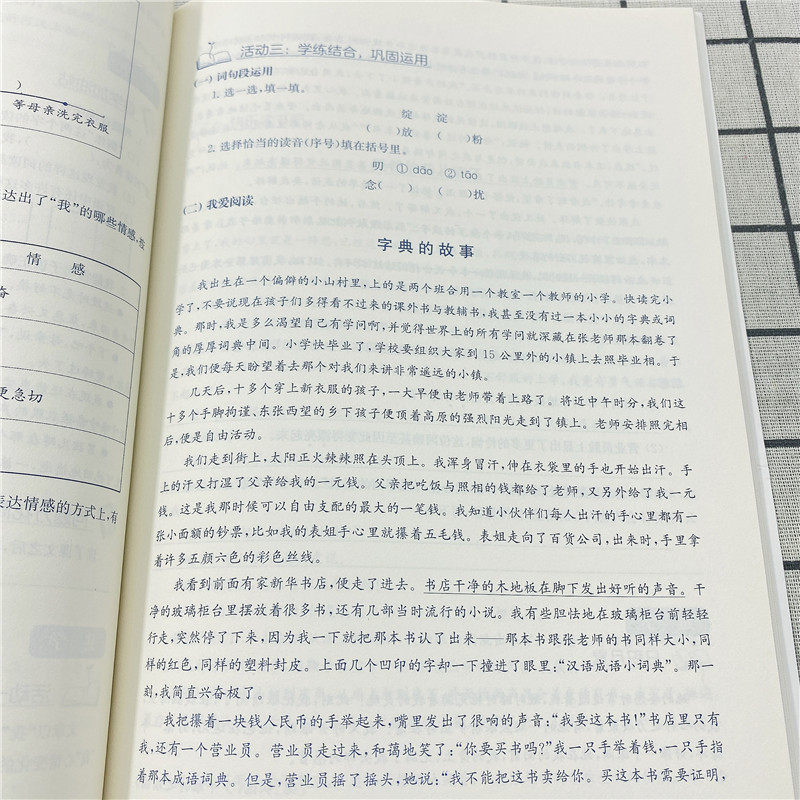 ）
等母亲洗完衣服
达出了“我”的哪些情感，
情 感
更急切
表达情感的方式上，有
活动三：学练结合，巩固运用
(一) 词句段运用
1. 选一选，填一填。
绽 淀
（ ）放 （ ）粉
2. 选择恰当的读音(序号)填在括号里。
叨 ① dāo ② tāo
念（ ） （ ）扰
(二) 我爱阅读
字典的故事
我出生在一个偏僻的小山村里，上的是两个班合用一个教室一个教师的小学。快读完小
学了，不要说现在孩子们多得看不过来的课外书与教辅书，我甚至没有过一本小小的字典或词
典。那时，我是多么渴望自己有学问啊，并觉得世界上的所有学问就深藏在张老师那本翻卷了
角的厚厚词典中间。小学快毕业了，学校要组织大家到 15 公里外的小镇上去照毕业相。于
是，我们便每天盼望着去那个对我们来讲非常遥远的小镇。
几天后，十多个穿上新衣服的孩子，一大早便由老师带着上路了。将近中午时分，我们这
十多个手脚拘谨、东张西望的乡下孩子便顶着高原的强烈阳光走到了镇上。老师安排照完相
后，便是自由活动。
我们走到街上，太阳正火辣辣照在头顶上。我浑身冒汗，伸在衣袋里的手也开始出汗。手
上的汗又打湿了父亲给我的一元钱。父亲把吃饭与照相的钱都给了老师，又另外给了我一元
钱。这是我那时候可以自由支配的最大的一笔钱。我知道小伙伴们每人出汗的手心里都有一
张小面额的钞票，比如我的表姐手心里就攥着五毛钱。表姐走向了百货公司，出来时，手里拿
着许多五颜六色的彩色丝线。
我看到前面有家新华书店，便走了进去。书店干净的木地板在脚下发出好听的声音。干
净的玻璃柜台里摆放着很多书，还有几部当时流行的小说。我有些胆怯地在玻璃柜台前轻轻
行走，突然停了下来，因为我一下就把那本书认了出来——那本书跟张老师的书同样大小，同
样的红色，同样的塑料封皮。上面几个凹印的字却一下撞进了眼里：“汉语成语小词典”。那一
刻，我简直兴奋极了。
我把攥着一块钱人民币的手举起来，嘴里发出了很响的声音：“我要这本书！”书店里只有
我，还有一个营业员。营业员走过来，和蔼地笑了：“你要买书吗？”我一只手举着钱，一只手指
着那本成语词典。但是，营业员摇了摇头，她说：“我不能把这书卖给你。买这本书需要证明，